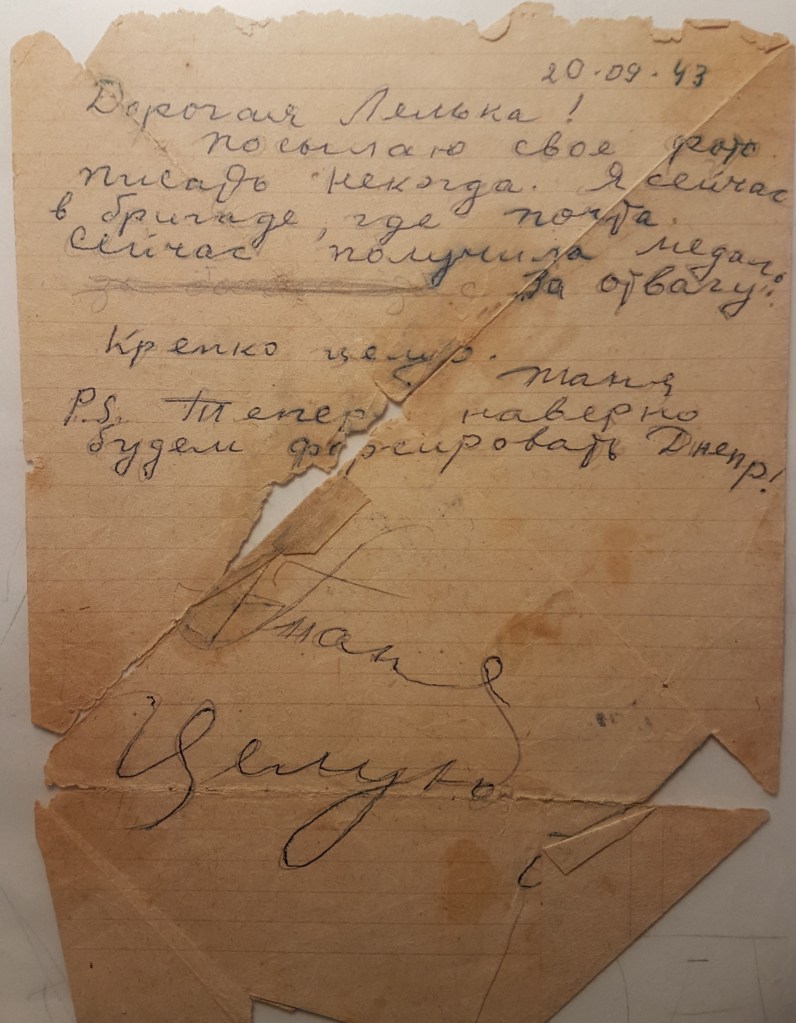 20.09.43
Дорогая Лялька!
посылаю свое фото
писать некогда. Я сейчас
в бригаде, где почта.
Сейчас получила медаль
"За отвагу".
Крепко целую.
Таня
P.S. Теперь наверно
будем форсировать Днепр!
Таня
Целую